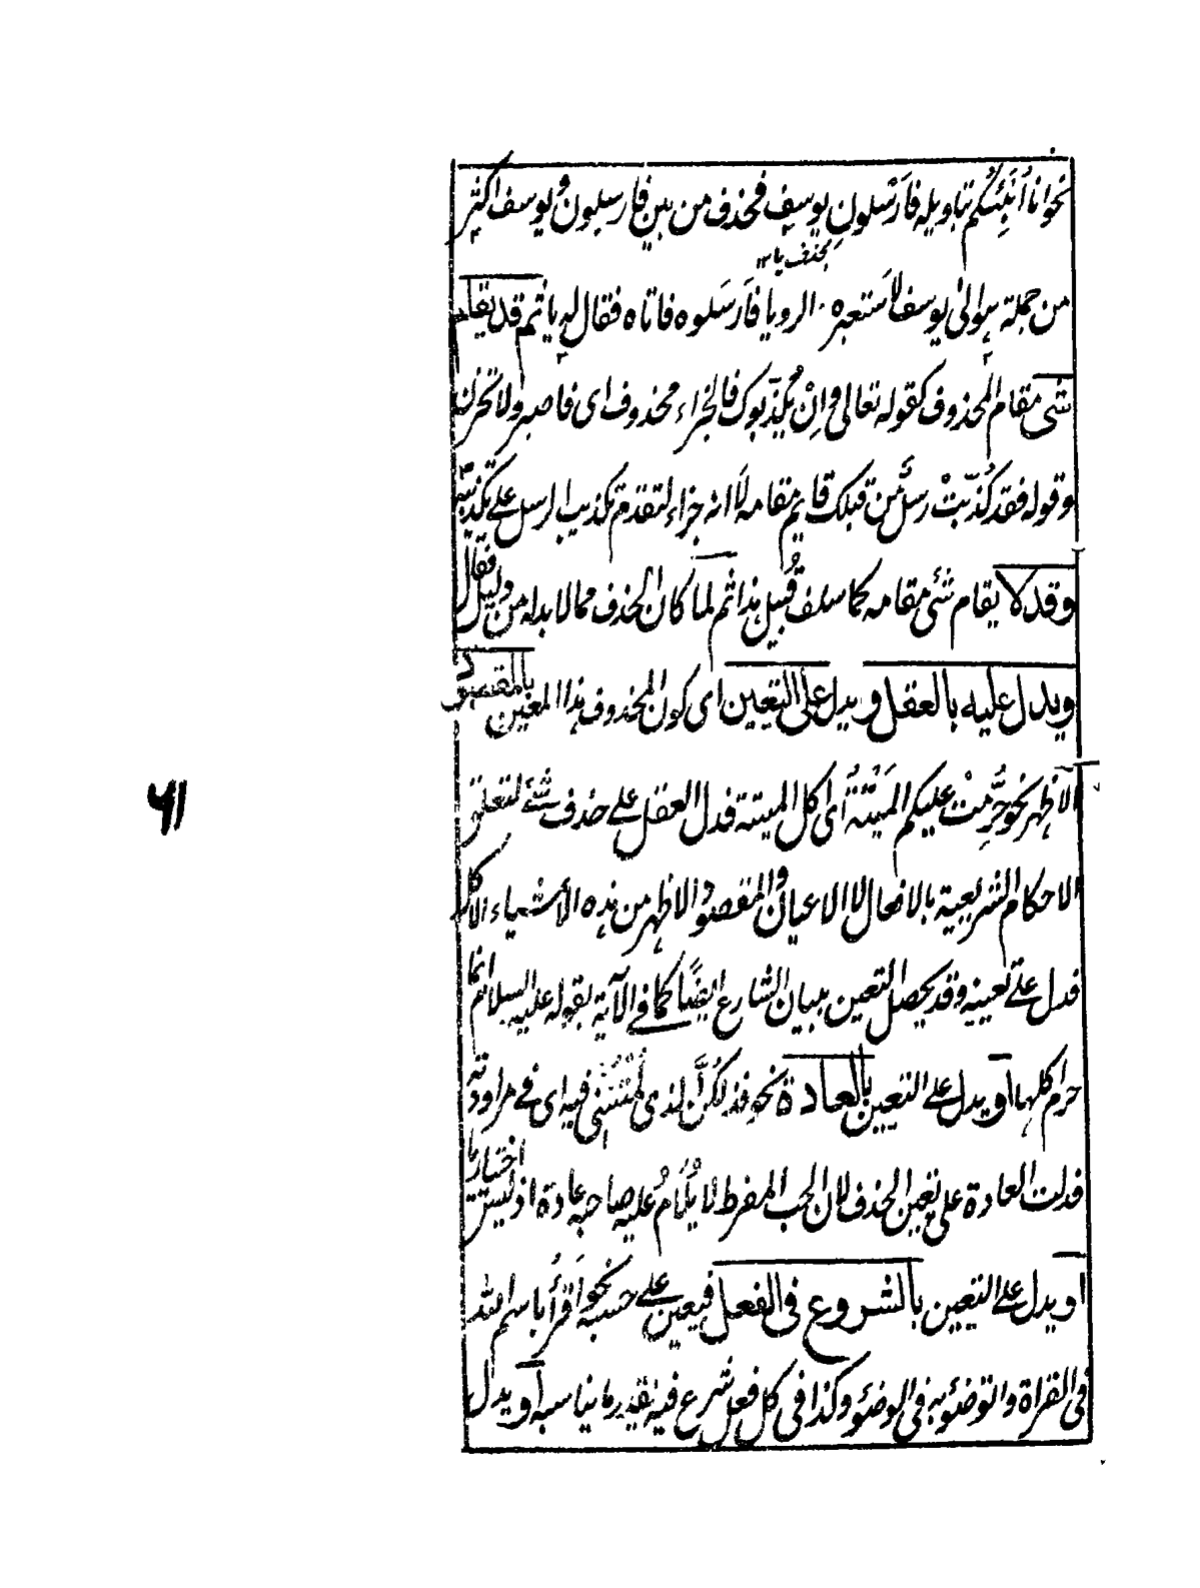 نحو انا أُنَبِّئُكُم بتاويله فَاَرْسِلُونِ يوسف فحذف من بين فارسلون و يوسف اكثر
بحذف يا ١٢
من جملة هو الى يوسف لاَستعبره الرويا فاَرسَلوه فاتاه فقال له يا ثم قد يقام
شئ مقام المحذوف كقوله تعالى وَاِنْ يُكَذِّبُوك فالجزاء محذوف اى فاصبر ولا تحزن
وقوله فقد كُذِّبَتْ رسلٌ مِّن قبلك قايم مقامه لاَ انه جزاء لتقدم تكذيب الرسل على تكذيبه
وقد لا يقام شئ مقامه كما سلف قُبيل هذا ثم لما كان الحذف مما لا بد له من دليل فقال
ويدل عليه بالعقل و يدل على التعيين اى كون المحذوف هذا المعين بالمقصود
الاظهر نحو حُرِّمَتْ عليكم المَيْتَةُ اى اكل الميتة فدل العقل على حذف شئ لتعلق
الاحكام الشريعية بالافعال لا الاعيان والمقصود الاظهر من هذه الأشياء الاكل
فدل على تعيينه وقد يحصل التعين ببيان الشارع ايضًا كما فى الآية بقوله عليه السلام انما
حرام كلها او يدل على التعيين بالعادة نحو فذلكُنَّ الذى لُمْتُنَّنِى فيه اى فى مراودته
فدلت العادة على تعيين الحذف لان الحب المفرط لا يُلَامُ عليه صاحبه عادة اذ ليس اختياريا
او يدل على التعيين بالشروع فى الفعل فيعين على حسبه نحو اَقْرأُ باسم الله
فى القراة والتوضئو به فى الوضئو وكذا فى كل فعل شرع فيه يقدر ما يناسبه او يدل
٦١